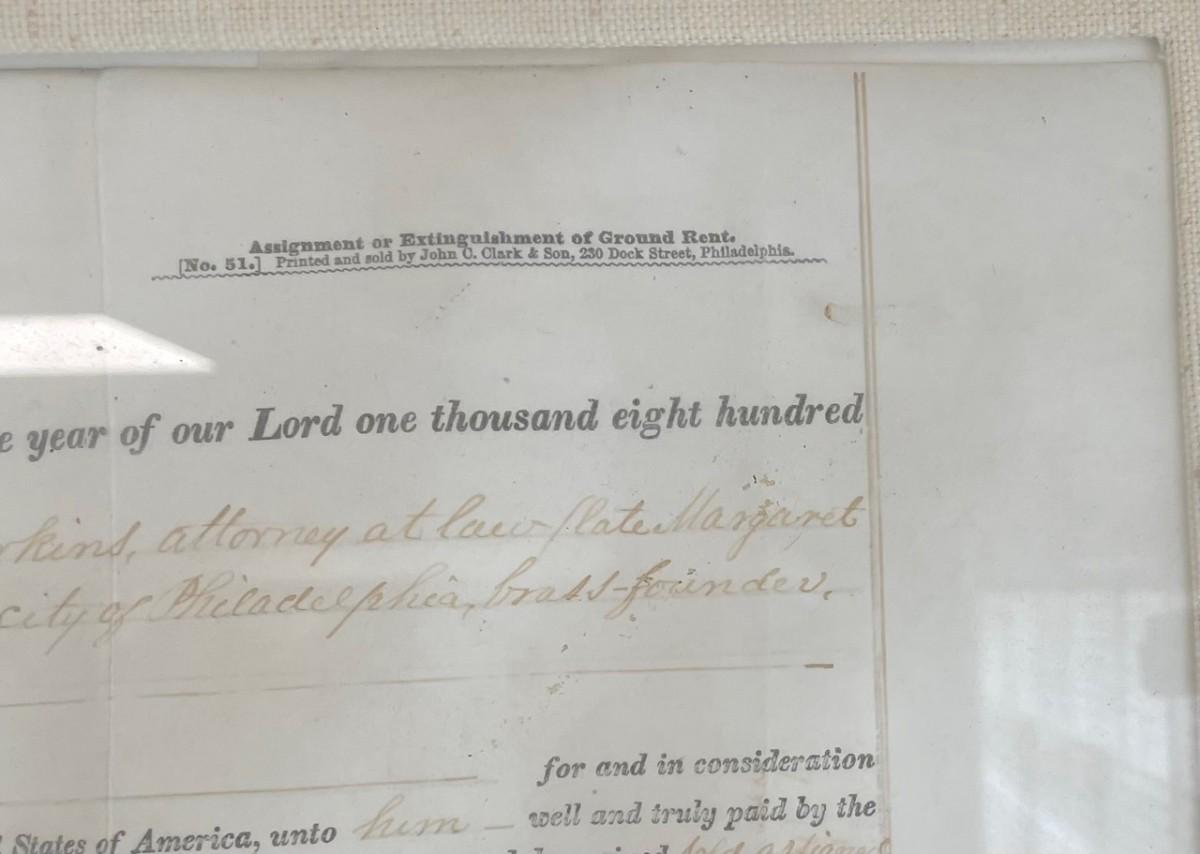 Assignment or Extinguishment of Ground Rent.
[No. 51.] Printed and sold by John C. Clark & Son, 230 Dock Street, Philadelphia.
year of our Lord one thousand eight hundred
rkins, attorney at law (late Margaret
city of Philadelphia, brass-founder,
for and in consideration
States of America, unto him — well and truly paid by the